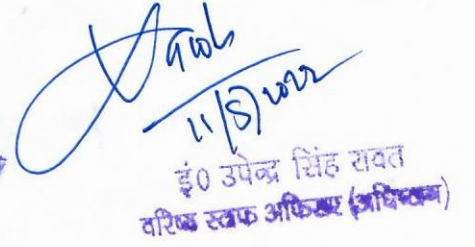 11/5/2022
इं0 उपेन्द्र सिंह रावत
वरिष्ठ स्टाफ अफिसर (अधिष्ठान)